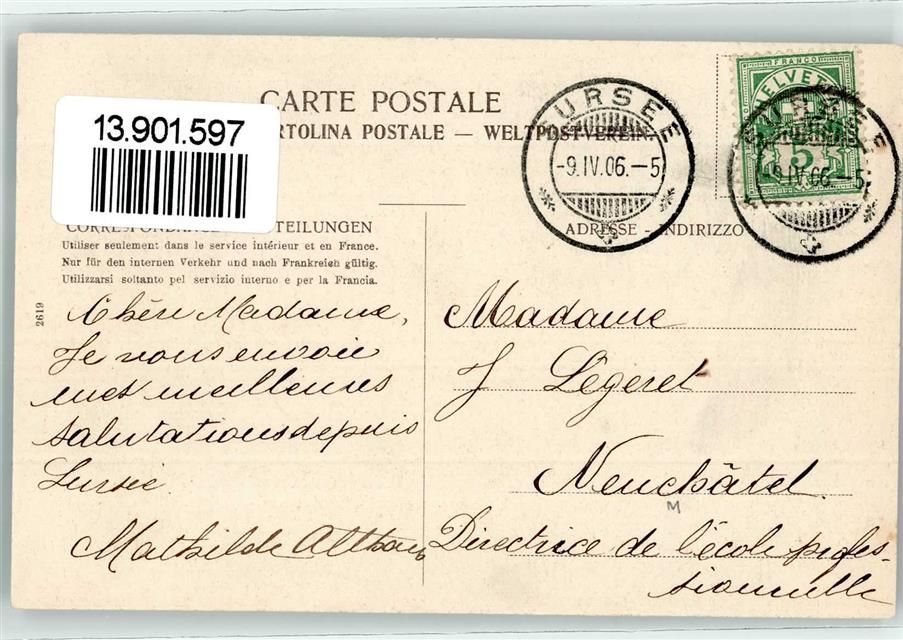 CARTE POSTALE
RTOLINA POSTALE — WELTPOSTVEREIN.
13.901.597
FRANCO
HELVET
5
SURSEE
-9.IV.06.-5
SURSEE
-9.IV.06.-5
CORRESPONDANCE TEILUNGEN
Utiliser seulement dans le service intérieur et en France.
Nur für den internen Verkehr und nach Frankreich gültig.
Utilizzarsi soltanto pel servizio interno e per la Francia.
2619
Chère Madame,
Je vous envoie
mes meilleures
salutations depuis
Sursée.
Mathilde
ADRESSE - INDIRIZZO
Madame
J Légeret
Neuchâtel.
M
Directrice de l'école profes-
sionnelle